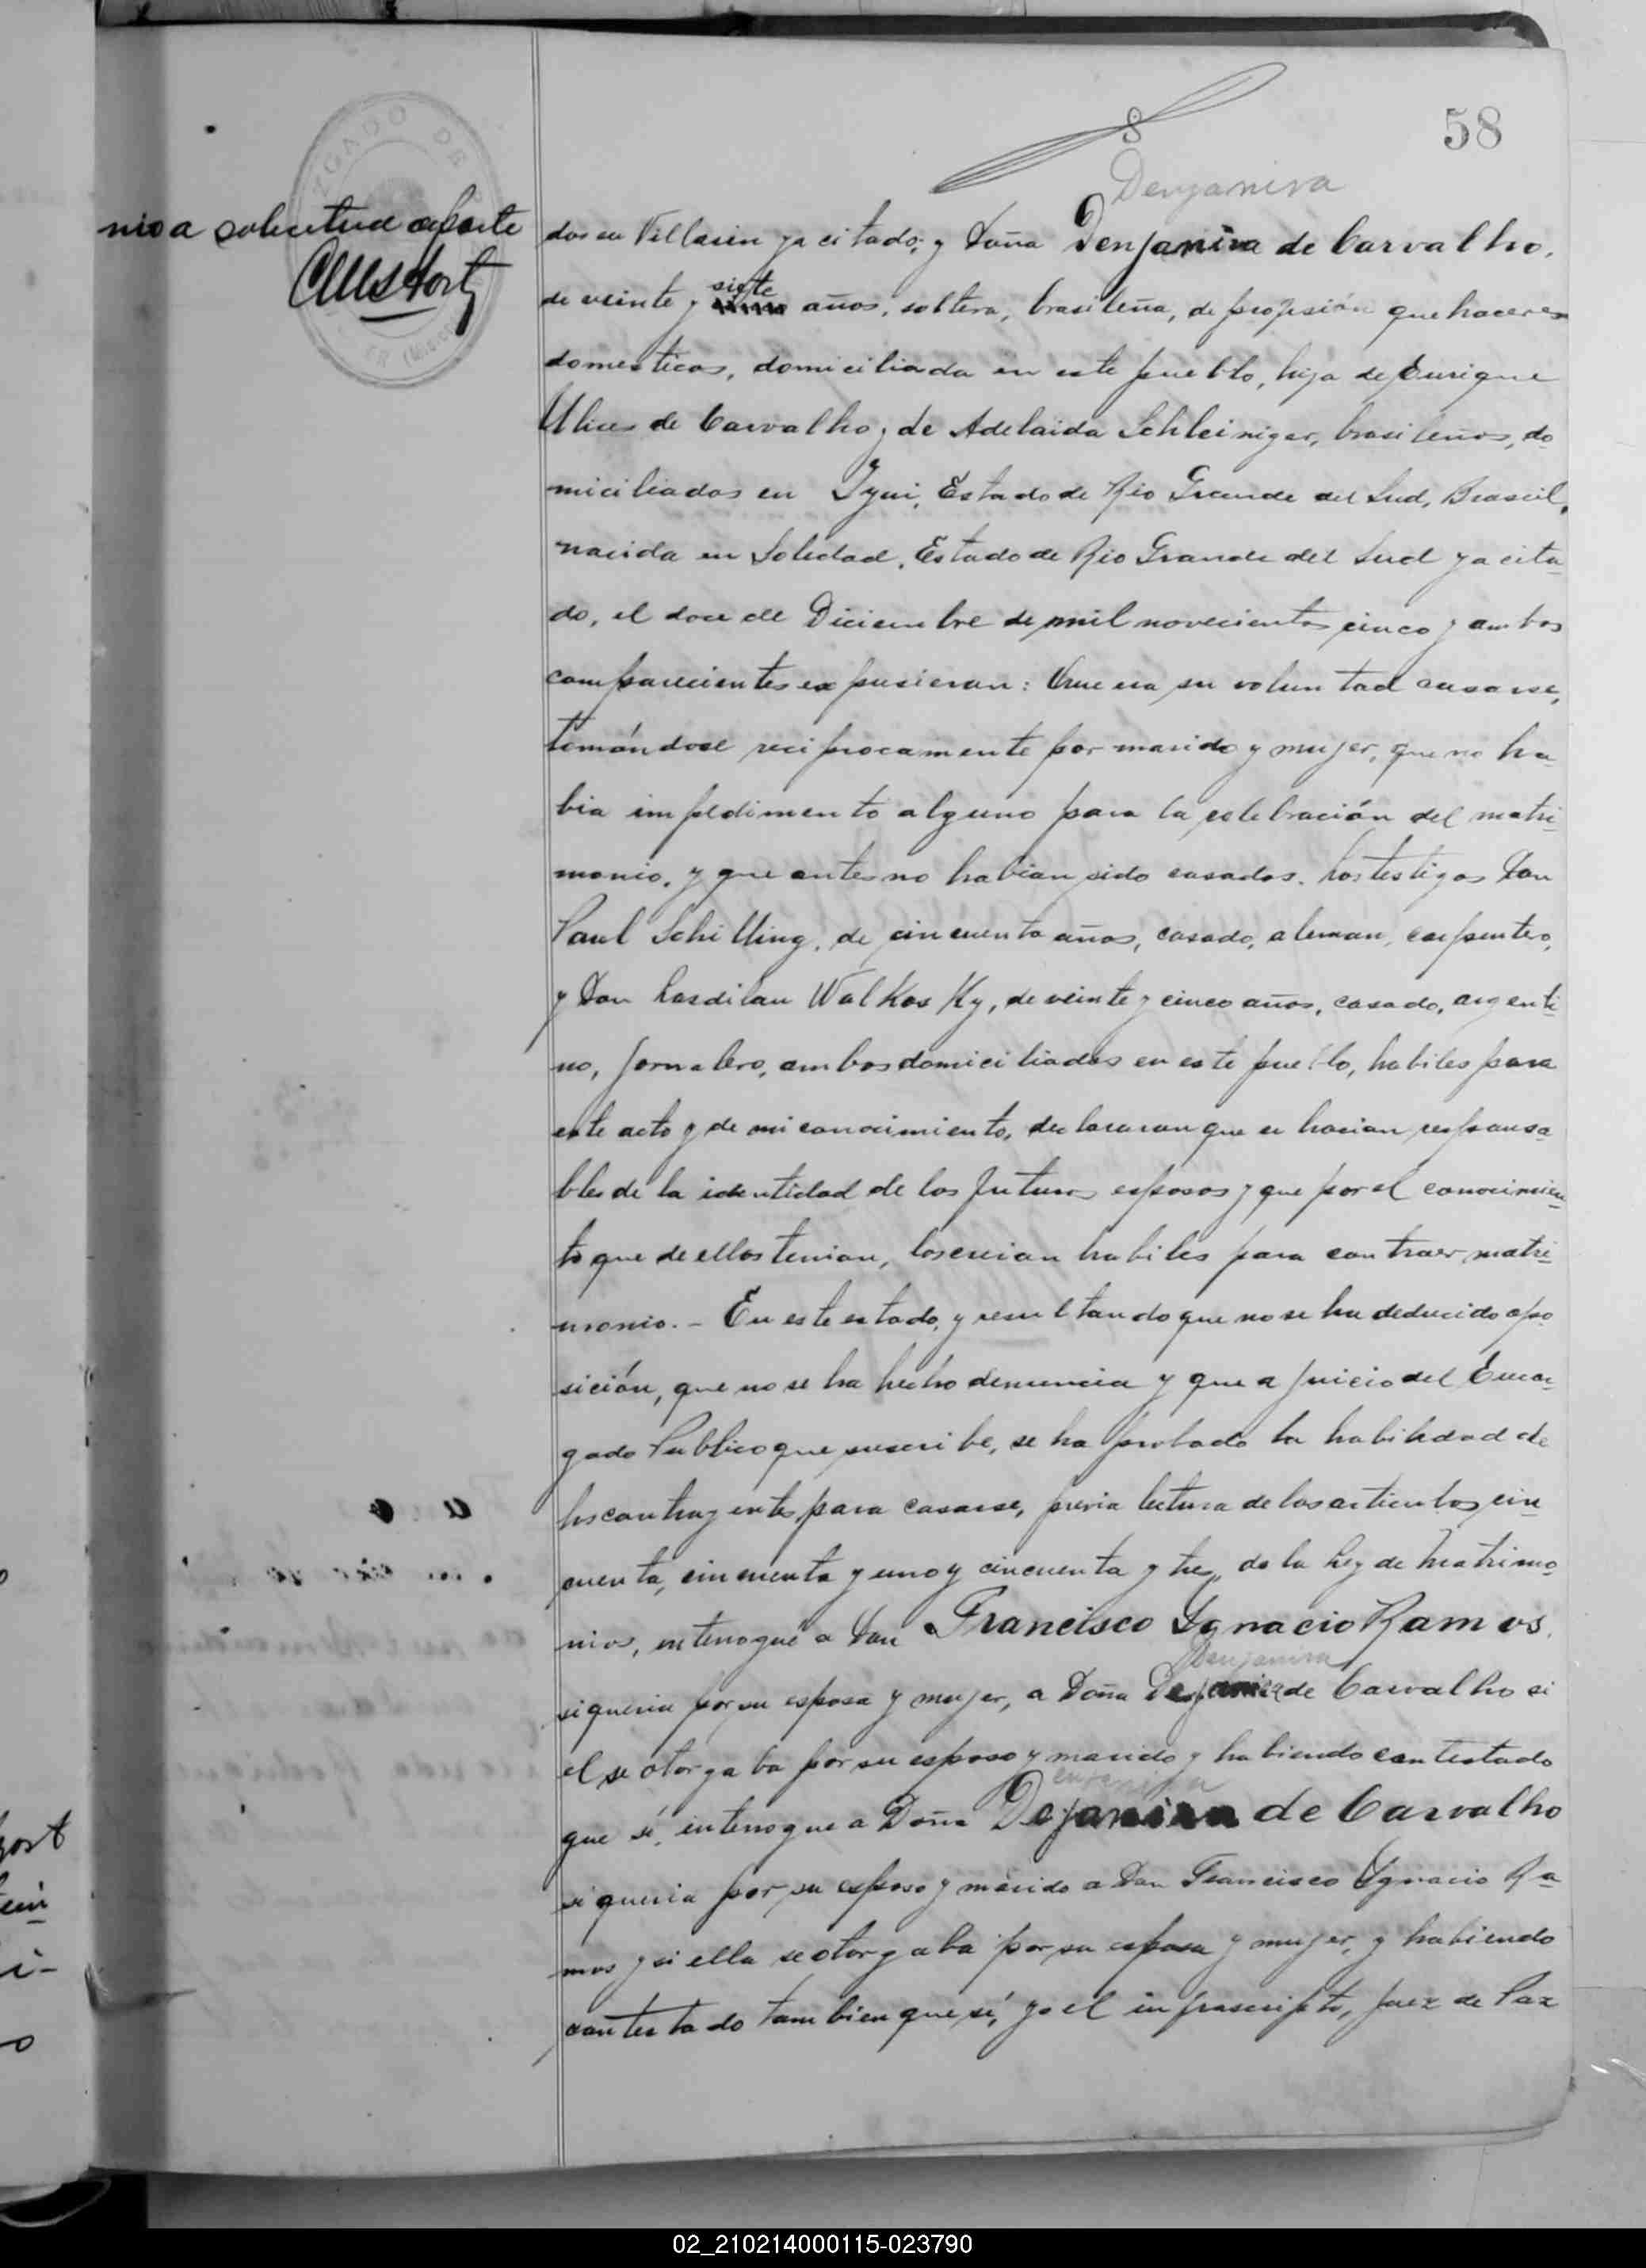 58
Denjanira
nio a solicitud de parte
dos en Villarin ya citado; y Doña Denjanira de Carvalho,
de veinte y siete años, soltera, brasileña, de profesión quehaceres
domesticos, domiciliada en este pueblo, hija de Enrique
Ulises de Carvalho y de Adelaida Schleiniger, brasileños, do
miciliados en Ijui, Estado de Rio Grande del Sud, Brascil,
nacida en Soledad, Estado de Rio Grande del Sud ya cita
do, el doce de Diciembre de mil novecientos cinco y ambos
comparecientes expusieran: Que era su voluntad casarse,
tomándose reciprocamente por marido y mujer, que no ha
bia impedimento alguno para la celebración del matri
monio, y que antes no habian sido casados. Los testigos Don
Paul Schilling, de cincuenta años, casado, aleman, carpintero,
y Don Lasdilau Walkosky, de veinte y cinco años, casado, argenti
no, jornalero, ambos domiciliados en este pueblo, habiles para
este acto y de mi conocimiento, declararan que se hacian responsa
bles de la identidad de los futuros esposos y que por el conocimien
to que de ellos tenian, los creian habiles para contraer matri
monio. - En este estado, y resultando que no se ha deducido opo
sición, que no se ha hecho denuncia y que a juicio del Encar
gado Publico que suscribe, se ha probado la habilidad de
los contrayentes para casarse, previa lectura de los articulos cin
cuenta, cincuenta y uno y cincuenta y tres, de la Ley de Matrimo
nios, interrogué a Don Francisco Ignacio Ramos,
Denjanira
si queria por su esposa y mujer, a Doña Dejanira de Carvalho si
el se otorgaba por su esposo y marido y habiendo contestado
enjanira
que sí, interrogue a Doña Dejanira de Carvalho
si queria por su esposo y marido a Don Francisco Ygnacio Ra
mos y si ella se otorgaba por su esposa y mujer, y habiendo
contestado tambien que sí, yo el infrascripto, Juez de Paz
02_210214000115-023790